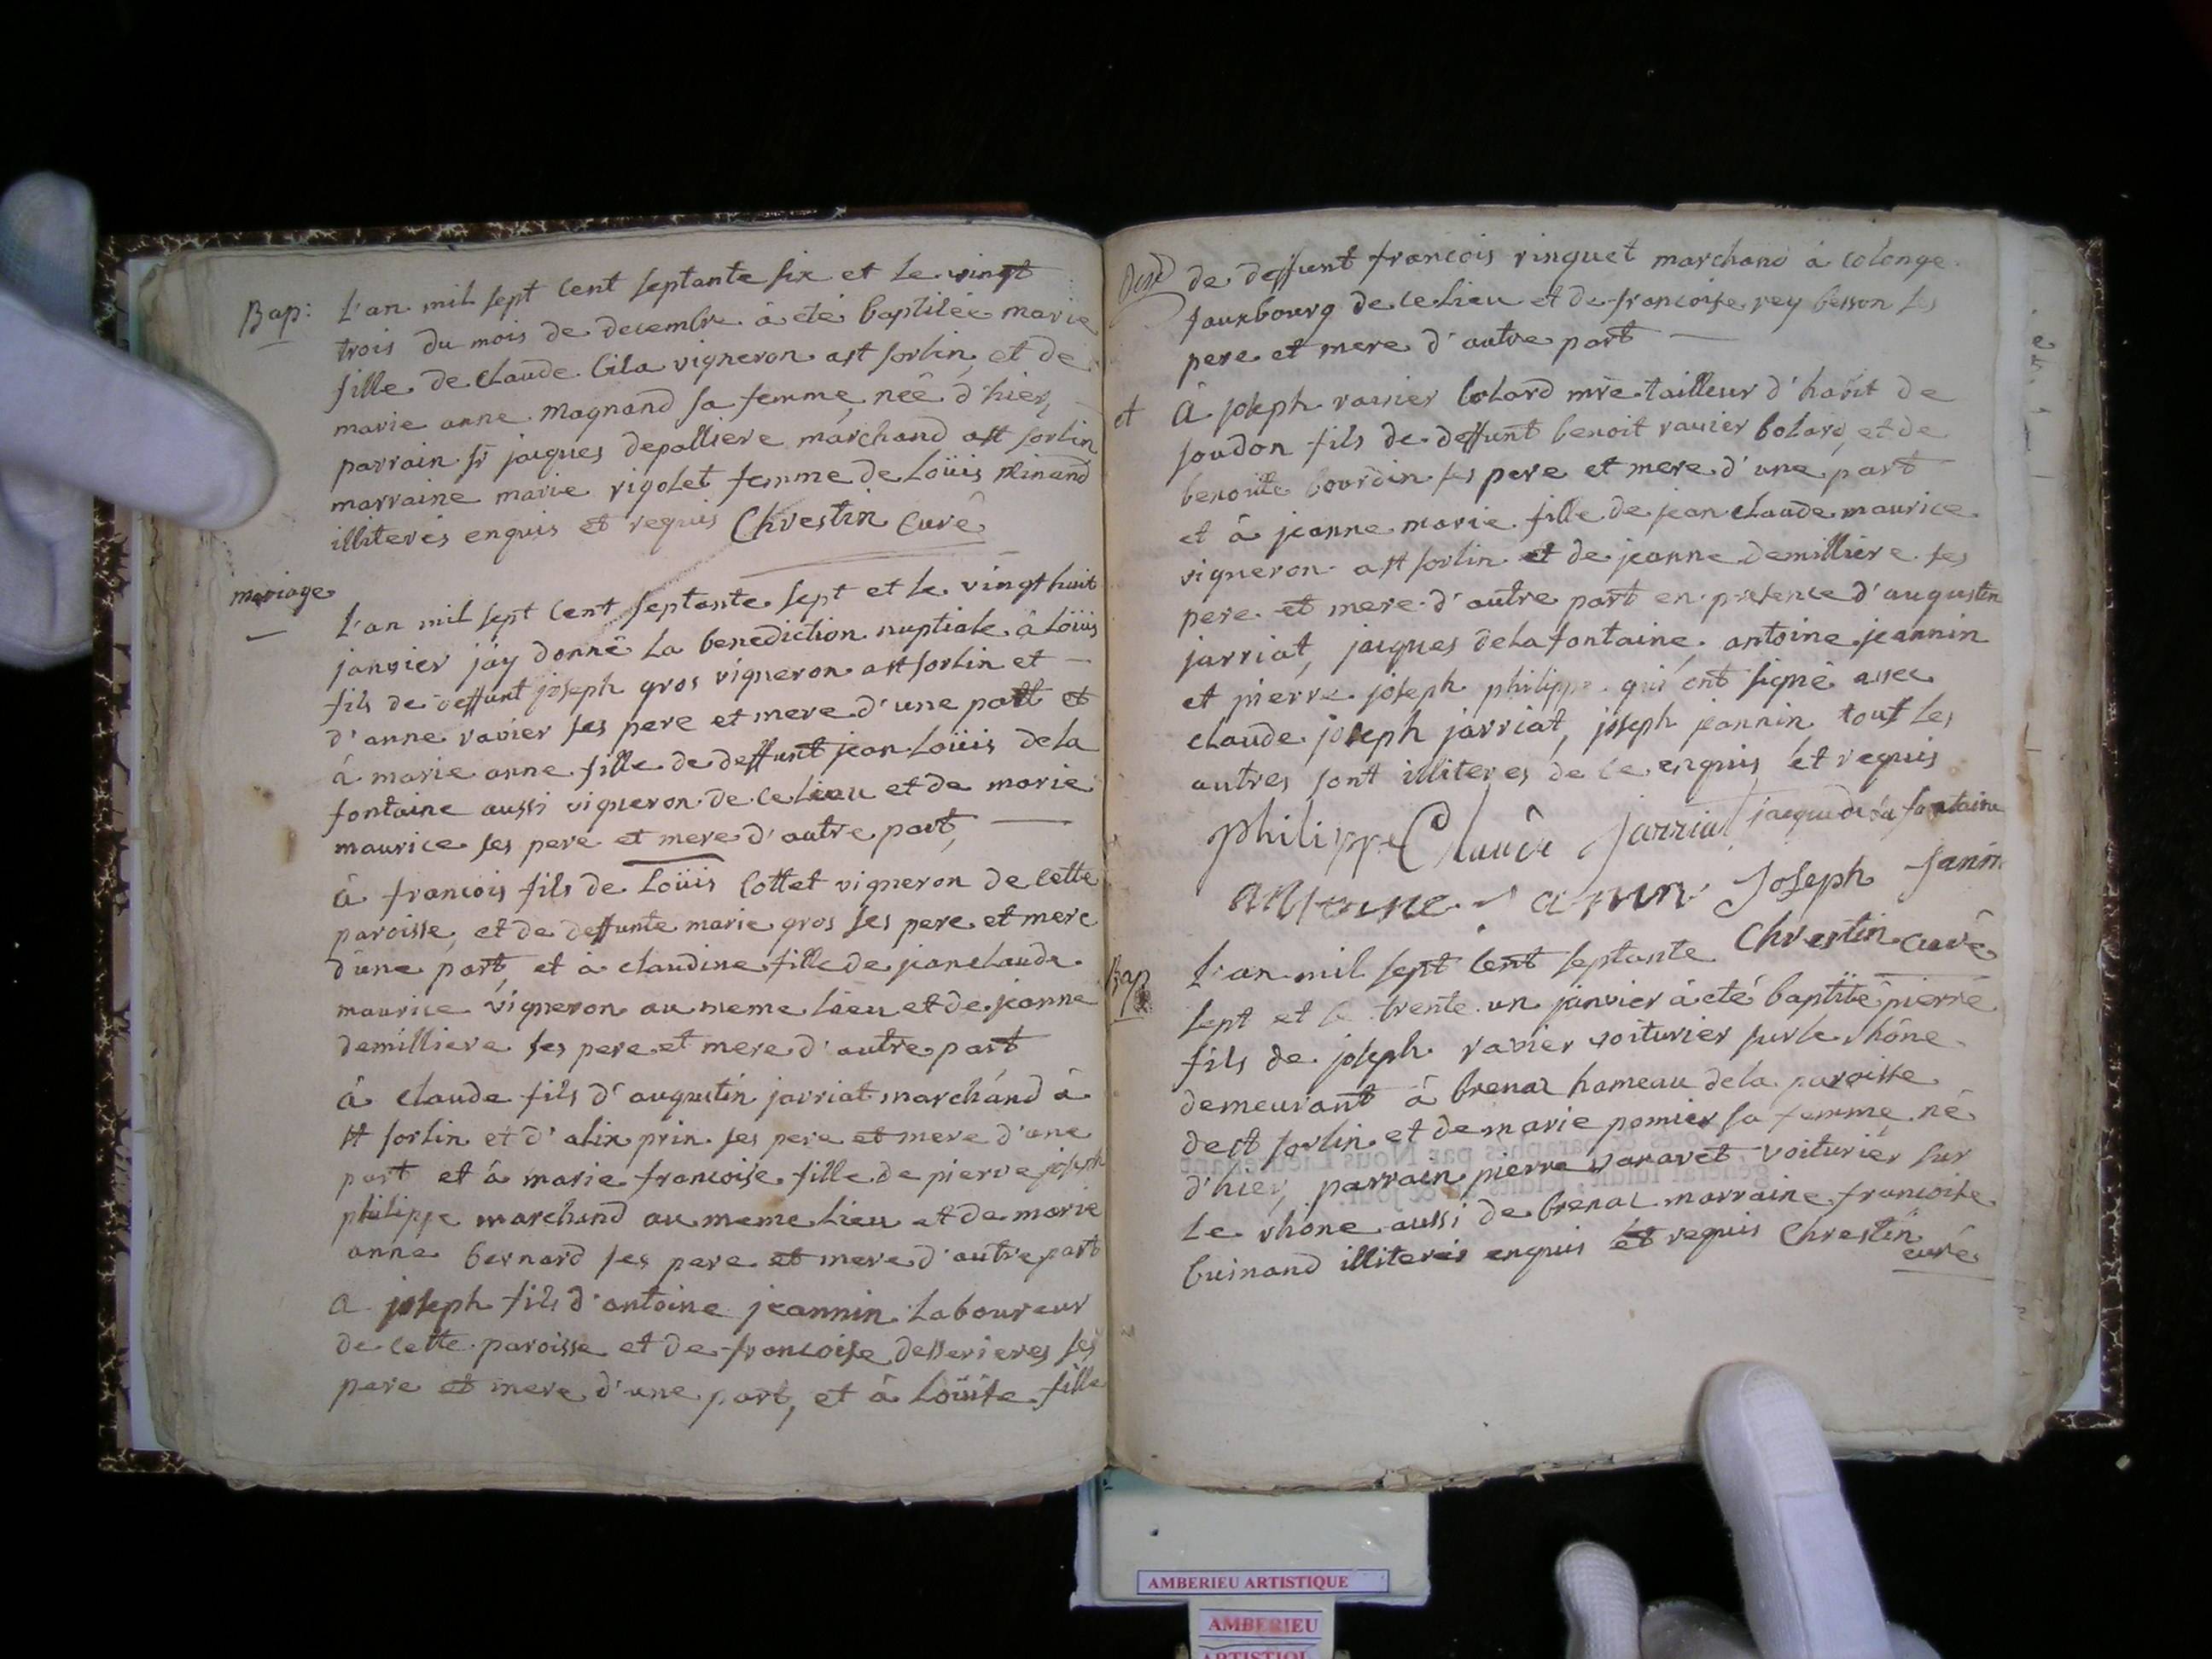 Bap: L'an mil sept cent septante six et le vingt
trois du mois de decembre à eté baptisée marie
fille de claude Cila vigneron a st sorlin, et de
marie anne magnand sa femme, née d'hier,
parrain sr jacques depalliere marchand a st sorlin
marraine marie rigolet femme de Loüis minand
illiterés enquis et requis Chrestin Curé
mariage
L'an mil sept cent septante sept et le vingt huit
janvier j'ay donné la benediction nuptiale à Loüis
fils de deffunt joseph gros vigneron a st sorlin et
d'anne ravier ses pere et mere d'une part et
à marie anne fille de deffunt jean Loüis dela
fontaine aussi vigneron de ce lieu et de marie
maurice ses pere et mere d'autre part,
à francois fils de Loüis Cottet vigneron de cette
paroisse, et de deffunte marie gros ses pere et mere
d'une part, et à claudine fille de jean claude
maurice vigneron au meme lieu et de jeanne
demilliere ses pere et mere d'autre part
à claude fils d'augustin jarriat marchand à
st sorlin et d'alix prin ses pere et mere d'une
part et à marie francoise fille de pierre joseph
philippe marchand au meme lieu et de marie
anne bernard ses pere et mere d'autre part
a joseph fils d'antoine jeannin laboureur
de cette paroisse et de francoise desserieres ses
pere et mere d'une part, et à Loüise fille
de deffunt francois vinguet marchand à Colonge
fauxbourg de ce lieu et de francoise rey besson ses
pere et mere d'autre part
et à joseph ravier bolard mre tailleur d'habit de
soudon fils de deffunt benoit ravier bolard, et de
benoite bourdin ses pere et mere d'une part
et à jeanne marie fille de jean claude maurice
vigneron a st sorlin et de jeanne demilliere ses
pere et mere d'autre part en presence d'augustin
jarriat, jacques delafontaine, antoine jeannin
et pierre joseph philippe qui ont signé avec
claude joseph jarriat, joseph jeannin tous les
autres sont illiteres de ce enquis et requis
philippe Claude Jarriat jacque de la fontaine
antoine janin Joseph Janin
Chrestin curé
Bap L'an mil sept cent septante
sept et le trente un janvier à eté baptisé pierre
fils de joseph ravier voiturier sur le rhône
demeurant à brenaz hameau dela paroisse
de st sorlin et de marie pomier sa femme né
d'hier, parrain pierre varavet voiturier sur
Le rhône aussi de brenaz marraine francoise
buinand illiterés enquis et requis Chrestin
curé
AMBERIEU ARTISTIQUE
AMBERIEU
ARTISTIQUE